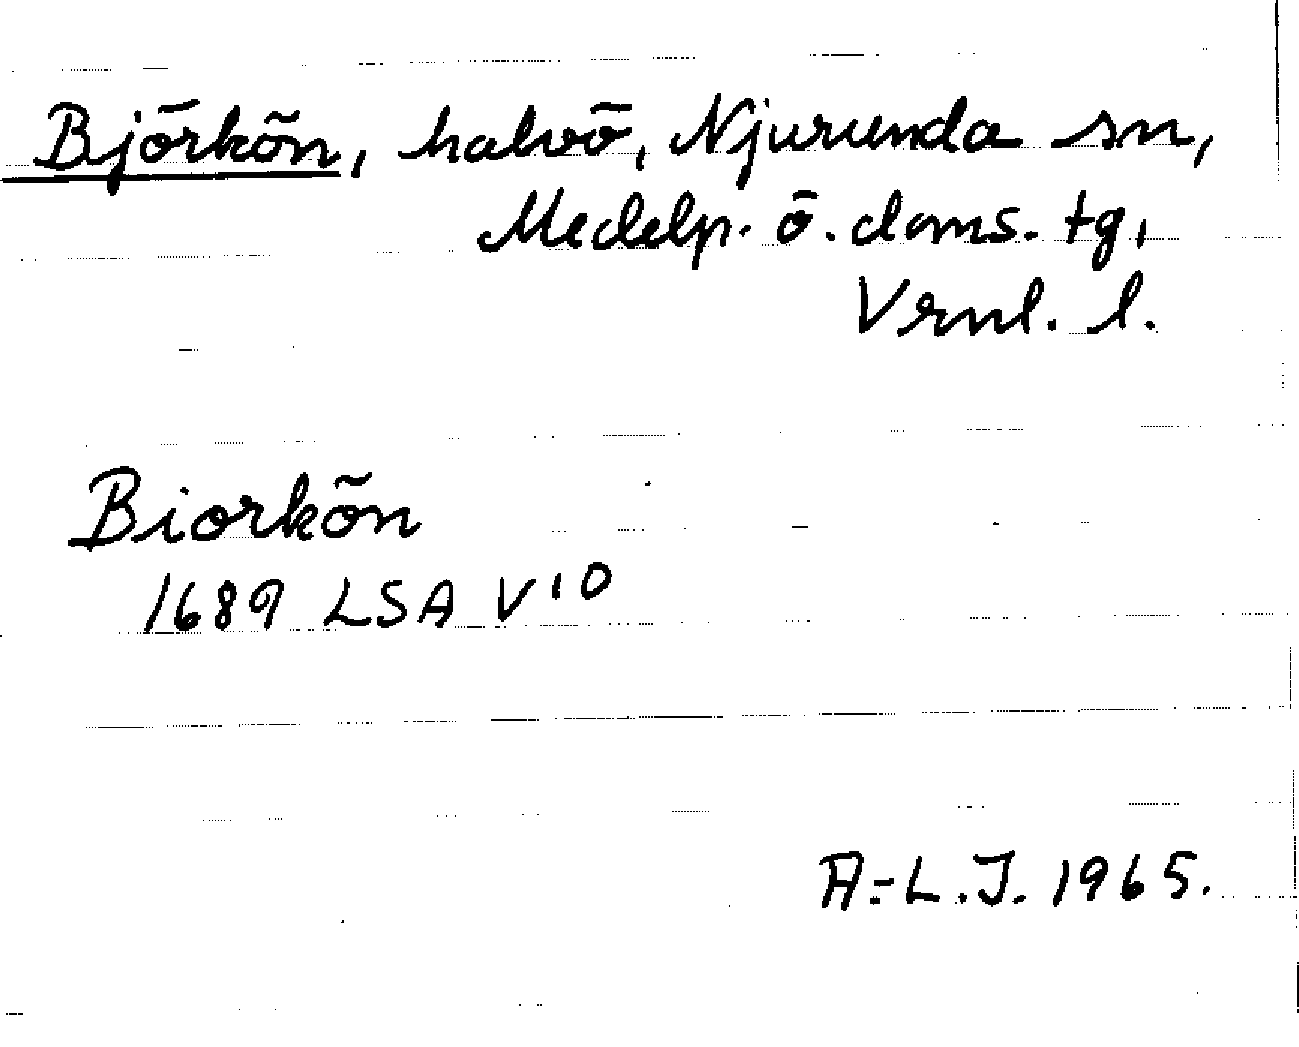 Björkön, halvö, Njurunda sn,
Medelp. ö. doms. tg,
Vrnl. l.
Biorkön
1689 LSA V¹⁰
A.-L.J. 1965.